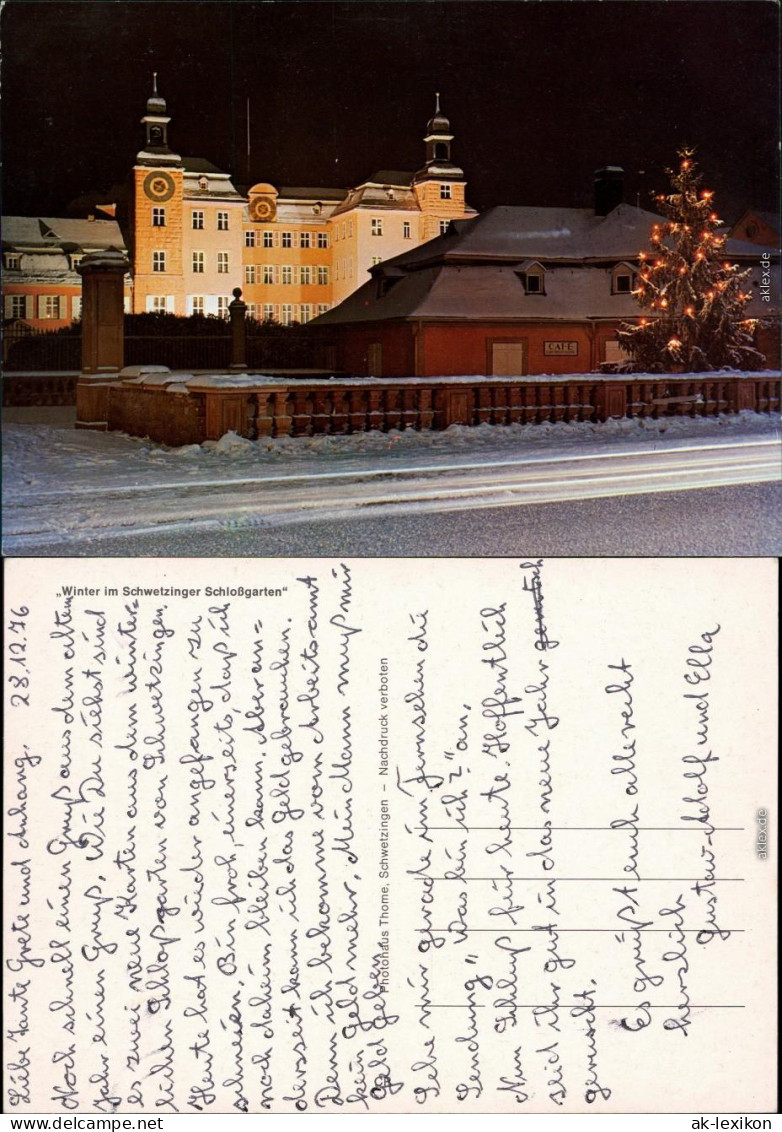 CAFE
„Winter im Schwetzinger Schloßgarten"
28.12.76
Liebe Tante Grete und Anhang.
Noch schnell einen Gruß aus dem alten
Jahr einen Gruß. Wie Du siehst sind
es zwei neue Karten aus dem winter=
lichen Schloßgarten von Schwetzingen.
Heute hat es wieder angefangen zu
schneien. Bin froh, einerseits, daß ich
noch daheim bleiben kann. Aber an=
dersseit kann ich das Geld gebrauchen.
Denn ich bekomme vom Arbeitsamt
kein Geld mehr. Mein Mann muß mir
Geld geben.
Photohaus Thome, Schwetzingen – Nachdruck verboten
Sehe mir gerade im Fernsehen die
Sendung „Was bin ich?" an.
Nun Schluß für heute. Hoffentlich
seid ihr gut in das neue Jahr
gerutscht.
Es grüßt euch alle recht
herzlich
Gustav-Adolf und Ella
ak-lexikon.de
ak-lexikon.de
ak-lexikon.com